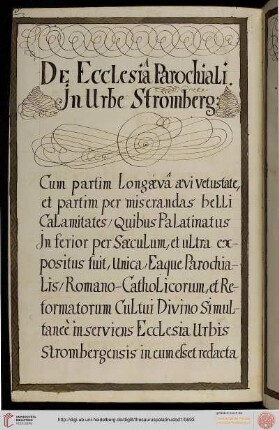 De Ecclesiâ Parochiali
In Urbe Stromberg:
Cum partim Longævâ ævi vetustate,
et partim per miserandas belli
Calamitates / Quibus Palatinatus
Inferior per Sæculum, et ultra ex-
positus fuit, Unica / Eaque Parochia-
Lis / Romano-Catholicorum, et Re-
formatorum Cultui Divino Simul-
taneè inserviens Ecclesia Urbis
Strombergensis in eum esset redacta